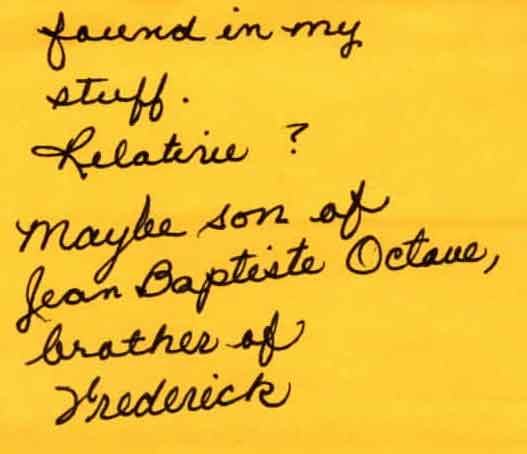 found in my
stuff.
Relative ?
Maybe son of
Jean Baptiste Octave,
brother of
Frederick